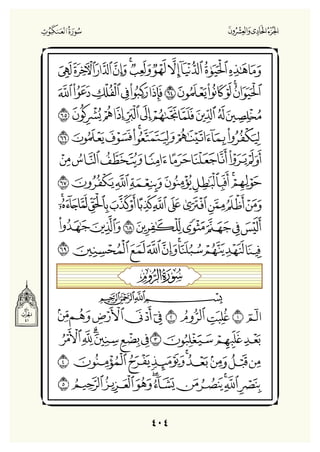 الجزء الحادي والعشرون سورة العنكبوت
وَمَا هَٰذِهِ الْحَيَوٰةُ الدُّنْيَا إِلَّا لَهْوٌ وَلَعِبٌ ۚ وَإِنَّ الدَّارَ الْآخِرَةَ لَهِيَ
الْحَيَوَانُ ۚ لَوْ كَانُوا يَعْلَمُونَ ٦٤ فَإِذَا رَكِبُوا فِي الْفُلْكِ دَعَوُا اللَّهَ
مُخْلِصِينَ لَهُ الدِّينَ فَلَمَّا نَجَّىٰهُمْ إِلَى الْبَرِّ إِذَا هُمْ يُشْرِكُونَ ٦٥
لِيَكْفُرُوا بِمَا آتَيْنَاهُمْ وَلِيَتَمَتَّعُوا ۖ فَسَوْفَ يَعْلَمُونَ ٦٦
أَوَلَمْ يَرَوْا أَنَّا جَعَلْنَا حَرَمًا آمِنًا وَيُتَخَطَّفُ النَّاسُ مِنْ
حَوْلِهِمْ ۚ أَفَبِالْبَاطِلِ يُؤْمِنُونَ وَبِنِعْمَةِ اللَّهِ يَكْفُرُونَ ٦٧
وَمَنْ أَظْلَمُ مِمَّنِ افْتَرَىٰ عَلَى اللَّهِ كَذِبًا أَوْ كَذَّبَ بِالْحَقِّ لَمَّا جَاءَهُ ۚ
أَلَيْسَ فِي جَهَنَّمَ مَثْوًى لِلْكَافِرِينَ ٦٨ وَالَّذِينَ جَاهَدُوا
فِينَا لَنَهْدِيَنَّهُمْ سُبُلَنَا ۚ وَإِنَّ اللَّهَ لَمَعَ الْمُحْسِنِينَ ٦٩
سورة الروم
بِسْمِ اللَّهِ الرَّحْمَٰنِ الرَّحِيمِ
الٓمٓ ١ غُلِبَتِ الرُّومُ ٢ فِي أَدْنَى الْأَرْضِ وَهُمْ مِنْ
بَعْدِ غَلَبِهِمْ سَيَغْلِبُونَ ٣ فِي بِضْعِ سِنِينَ ۗ لِلَّهِ الْأَمْرُ
مِنْ قَبْلُ وَمِنْ بَعْدُ ۚ وَيَوْمَئِذٍ يَفْرَحُ الْمُؤْمِنُونَ ٤
بِنَصْرِ اللَّهِ ۚ يَنْصُرُ مَنْ يَشَاءُ ۖ وَهُوَ الْعَزِيزُ الرَّحِيمُ ٥
٤٠٤